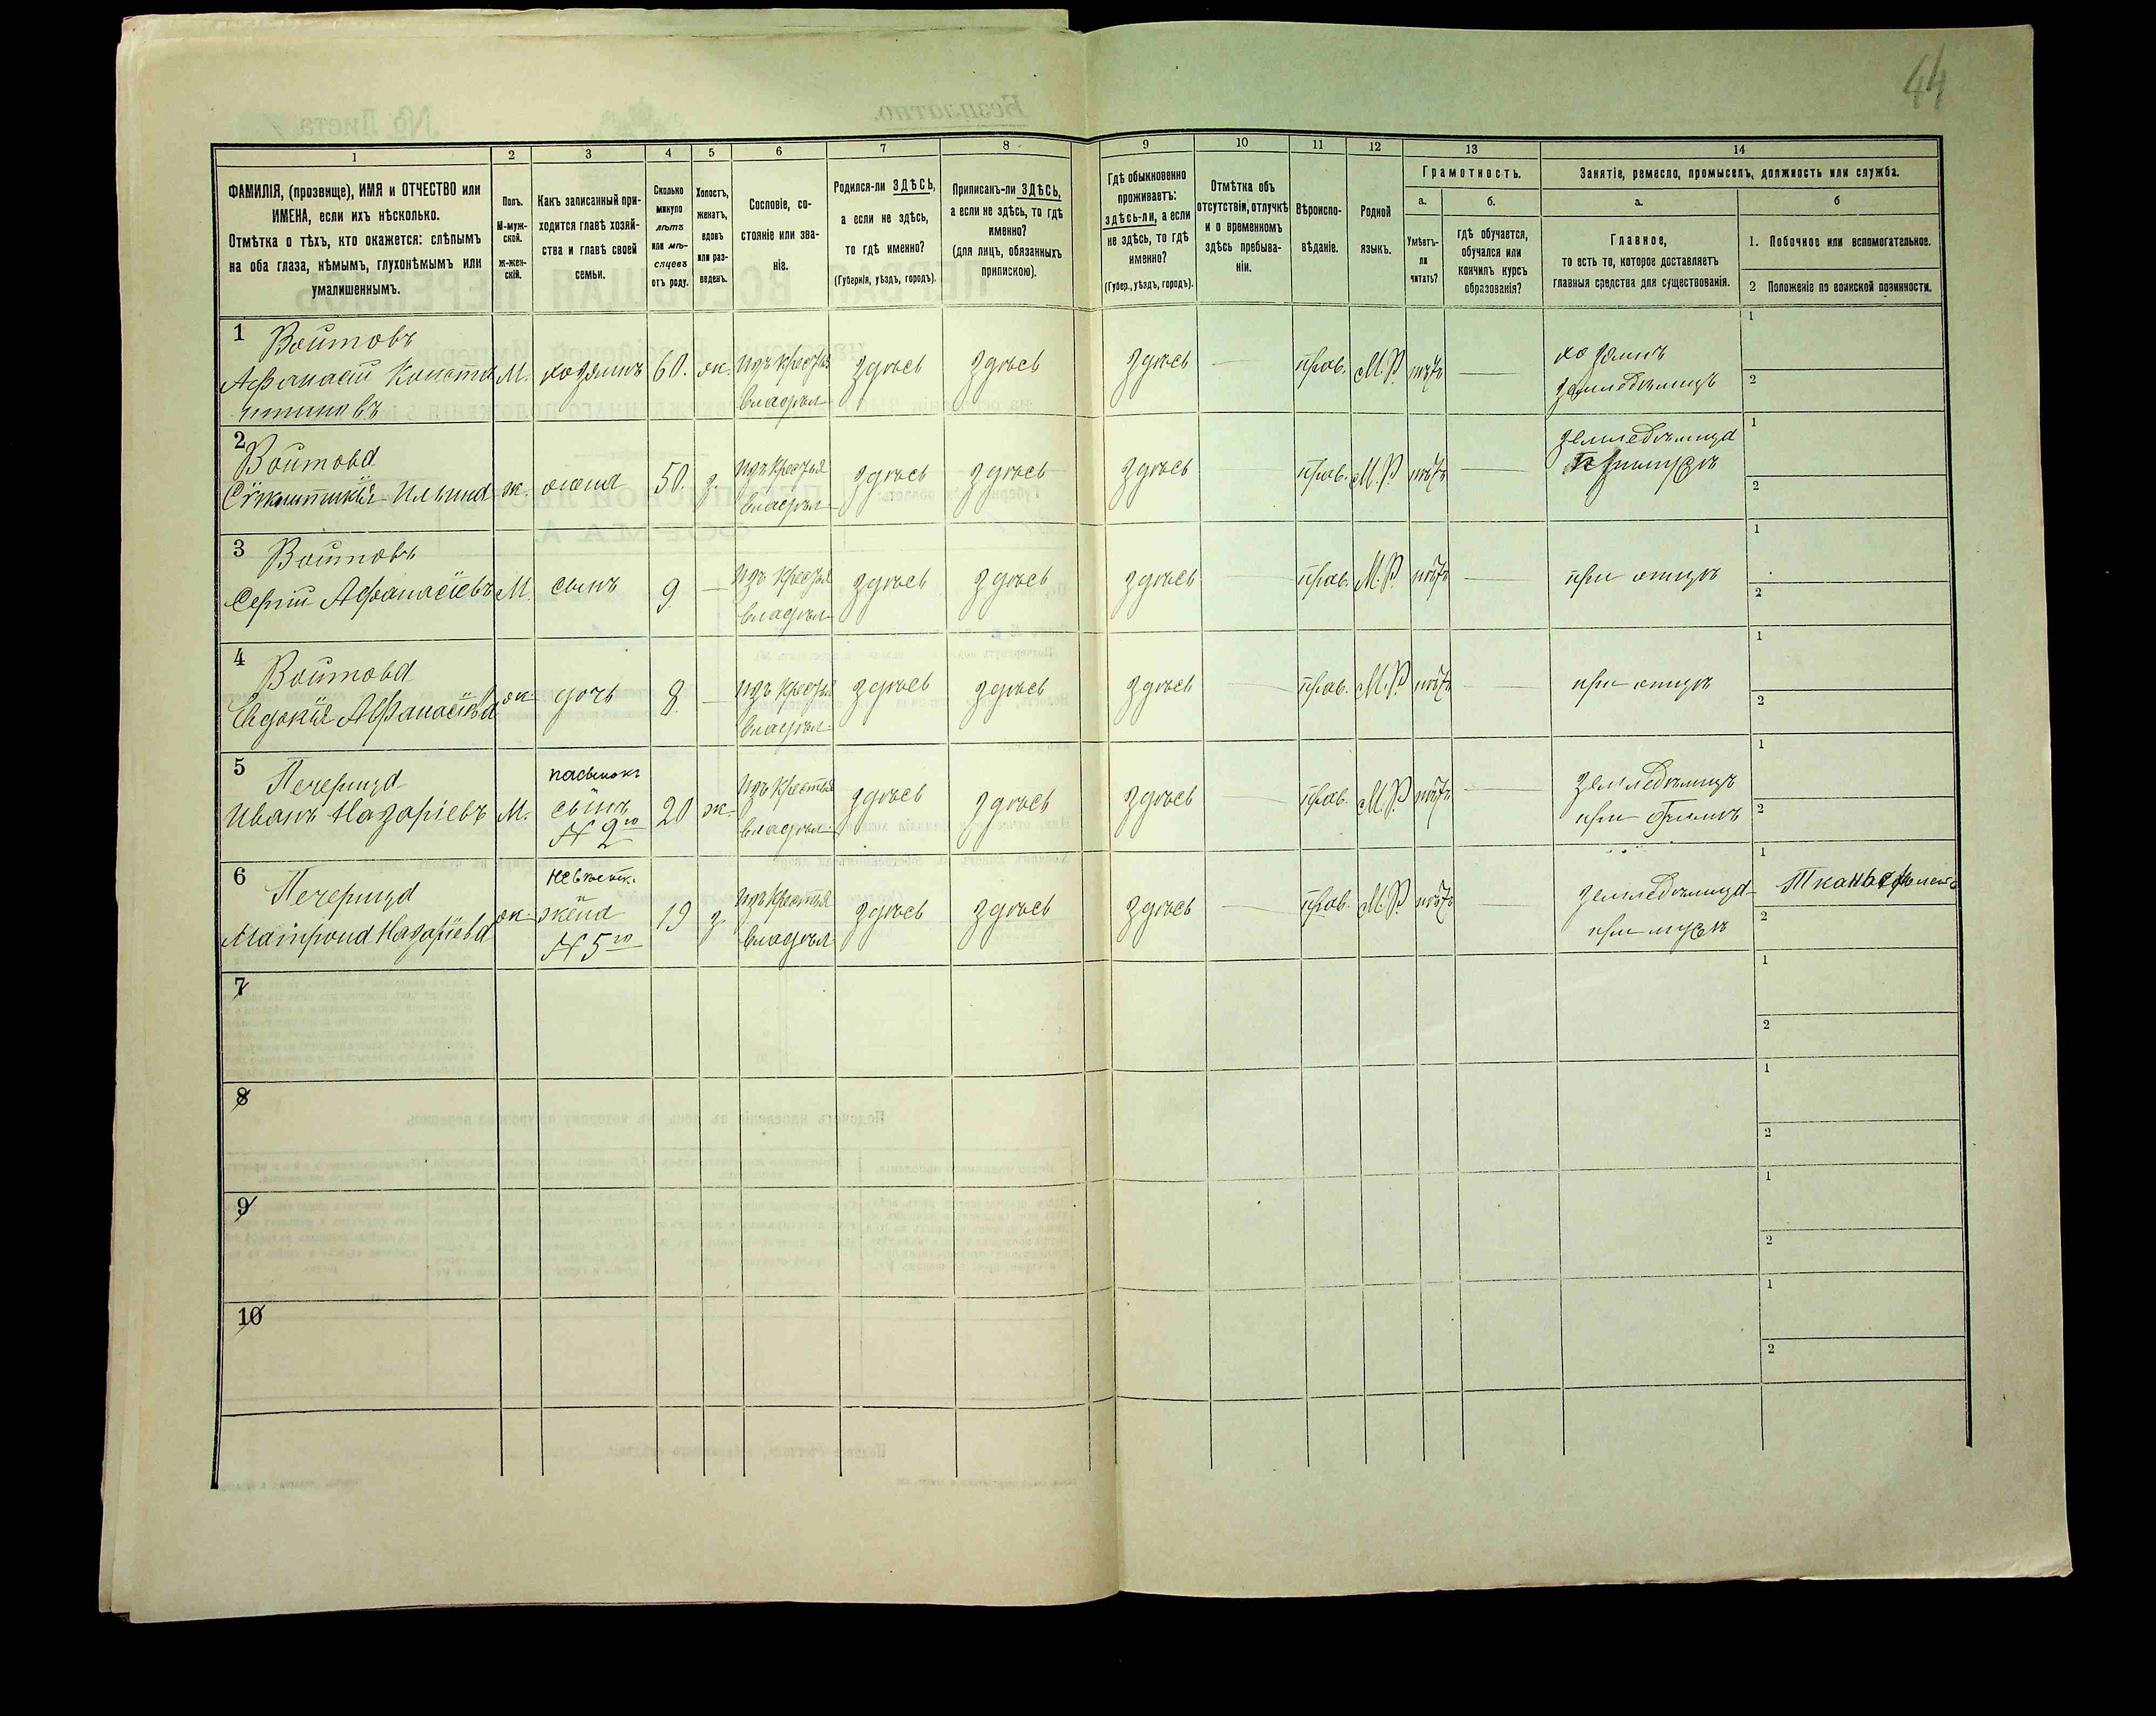 44
1
2
3
4
5
6
7
8
9
10
11
12
13
14
ФАМИЛІЯ, (прозвище), ИМЯ и ОТЧЕСТВО или
ИМЕНА, если ихъ нѣсколько.
Отмѣтка о тѣхъ, кто окажется: слѣпымъ
на оба глаза, нѣмымъ, глухонѣмымъ или
умалишеннымъ.
Полъ.
М-муж-
ской.
ж-жен-
скій.
Какъ записанный при-
ходится главѣ хозяй-
ства и главѣ своей
семьи.
Сколько
минуло
лѣтъ
или мѣ-
сяцевъ
отъ роду.
Холостъ,
женатъ,
вдовъ
или раз-
веденъ.
Сословіе, со-
стояніе или зва-
ніе.
Родился-ли ЗДѢСЬ,
а если не здѣсь,
то гдѣ именно?
(Губернія, уѣздъ, городъ).
Приписанъ-ли ЗДѢСЬ,
а если не здѣсь, то гдѣ
именно?
(для лицъ, обязанныхъ
припискою).
Гдѣ обыкновенно
проживаетъ:
здѣсь-ли, а если
не здѣсь, то гдѣ
именно?
(Губер., уѣздъ, городъ).
Отмѣтка объ
отсутствіи, отлучкѣ
и о временномъ
здѣсь пребыва-
ніи.
Вѣроиспо-
вѣданіе.
Родной
языкъ.
Грамотность.
а.
Умѣетъ-
ли
читать?
б.
гдѣ обучается,
обучался или
кончилъ курсъ
образованія?
Занятіе, ремесло, промыселъ, должность или служба.
а.
Главное,
то есть то, которое доставляетъ
главныя средства для существованія.
б
1. Побочное или вспомогательное.
2 Положеніе по воинской повинности.
1 Войтовъ
Афанасій Конста
нтиновъ
М.
хозяинъ
60.
ж.
изъ крестья
владѣл
здѣсь
здѣсь
здѣсь
прав.
М.Р.
нѣтъ
хозяинъ
земледѣлецъ
1
2
2 Войтова
Ильина
ж.
жена
50.
з.
изъ крестья
владѣл
здѣсь
здѣсь
здѣсь
прав.
М.Р.
нѣтъ
земледѣлица
при мужѣ
1
2
3 Войтовъ
Сергій Афанасіевъ
М.
сынъ
9
изъ крестья
владѣл
здѣсь
здѣсь
здѣсь
прав.
М.Р.
нѣтъ
при отцѣ
1
2
4 Войтова
Евдокія Афанасіева
ж.
дочь
8.
изъ крестья
владѣл
здѣсь
здѣсь
здѣсь
прав.
М.Р.
нѣтъ
при отцѣ
1
2
5 Печерица
Иванъ Назаріевъ
М.
пасынокъ
сынъ
N 2го
20
ж.
изъ крестья
владѣл.
здѣсь
здѣсь
здѣсь
прав.
М.Р.
нѣтъ
земледѣлецъ
при
1
2
6 Печерица
Матрона Назаріева
ж.
невѣстк.
жена
N 5го
19
з.
изъ крестья
владѣл
здѣсь
здѣсь
здѣсь
прав.
М.Р.
нѣтъ
земледѣлица
при мужѣ
1
2
7
1
2
8
1
2
9
1
2
10
1
2